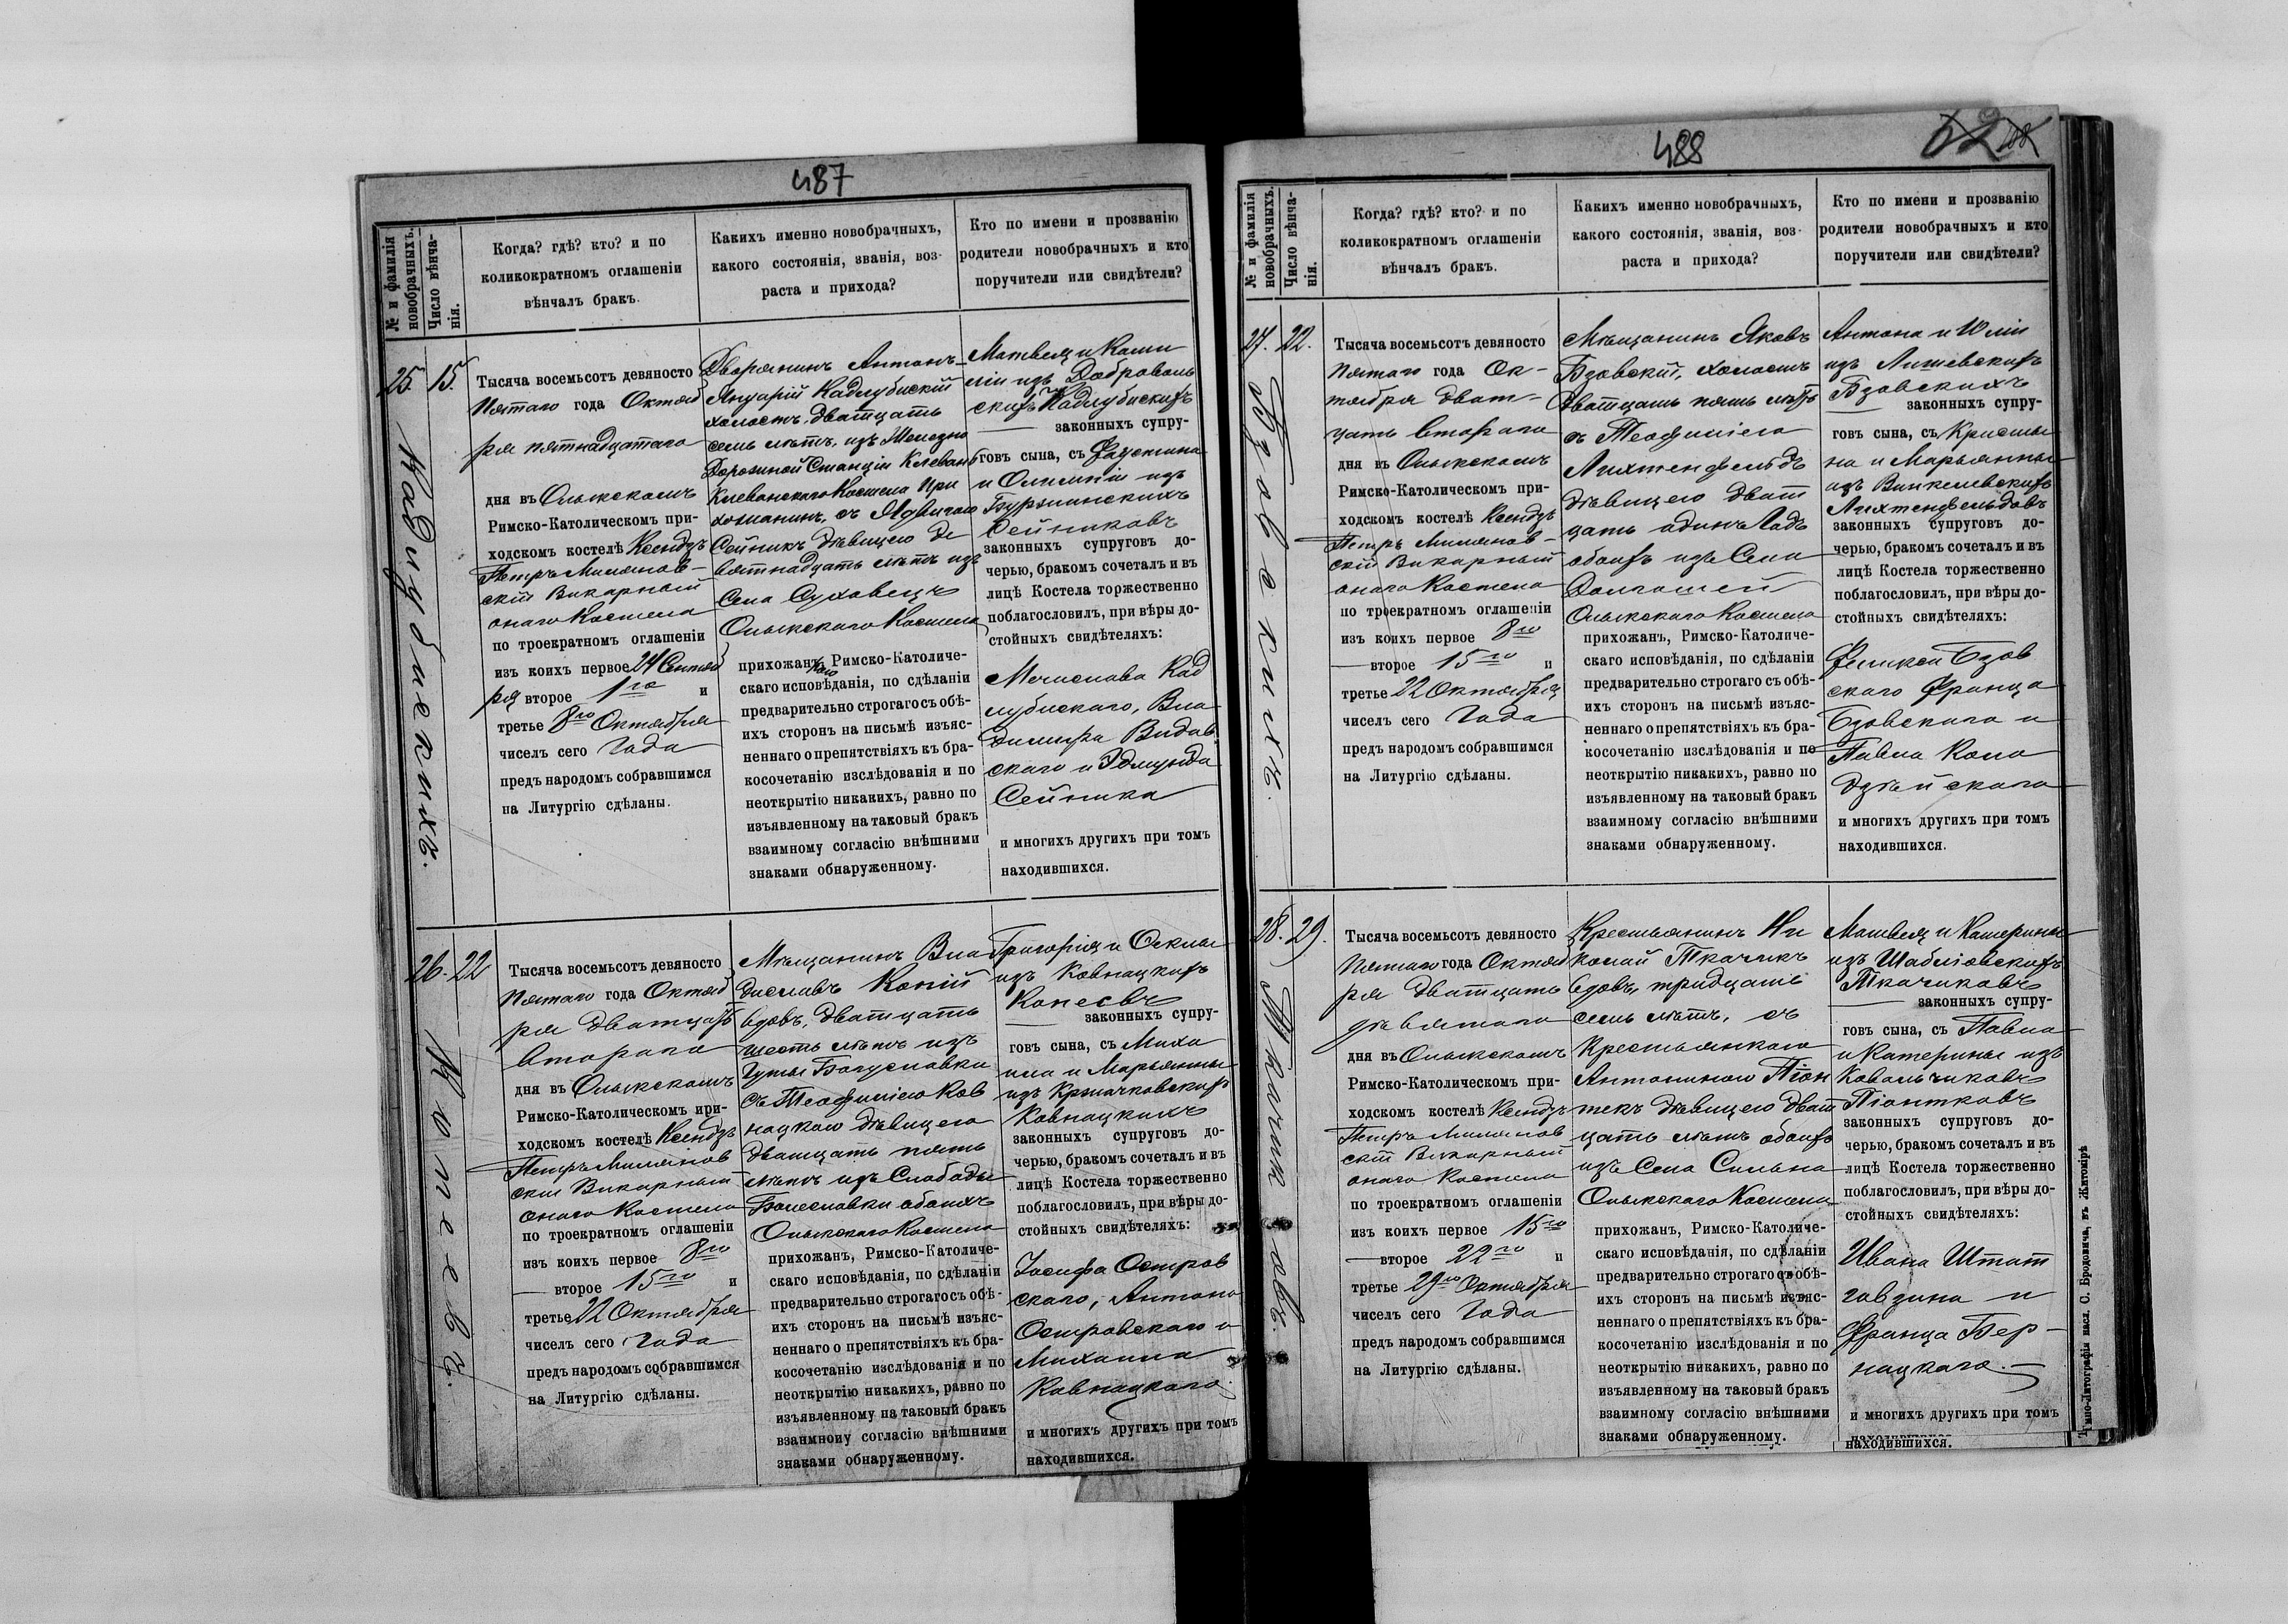 487
№ и фамилія
новобрачныхъ.
Число вѣнча-
нія.
Когда? гдѣ? кто? и по
коликократномъ оглашеніи
вѣнчалъ бракъ.
Какихъ именно новобрачныхъ,
какого состоянія, званія, воз-
раста и прихода?
Кто по имени и прозванію
родители новобрачныхъ и кто
поручители или свидѣтели?
25.
Кадлубискихъ.
15.
Тысяча восемьсотъ девяносто
Пятаго года Октяб
ря пятнадцатаго
дня въ Олыкскомъ
Римско-Католическомъ при-
ходскомъ костелѣ Ксендзъ
Петръ Милянов-
скій Викарный
онаго Костела
по троекратномъ оглашеніи
изъ коихъ первое 24 Сентяб
ря второе 1го и
третье 8го Октября
чиселъ сего Года
предъ народомъ собравшимся
на Литургію сдѣланы.
Дворянинъ Антонъ-
Януарій Кадлубискій
холостъ, дватцать
семь лѣтъ, изъ Желѣзно
Дорожной Станціи Клевань
Клеванскаго Костела При
хожанинъ, съ Ядвигою
Сейникъ дѣвицею де
вятнадцать лѣтъ изъ
Села Суховецъ
Олыкскаго Костела
прихожан Римско-Католиче-
скаго исповѣданія, по сдѣланіи
предварительно строгаго съ обѣ-
ихъ сторонъ на письмѣ изъяс-
неннаго о препятствіяхъ къ бра-
косочетанію изслѣдованія и по
неоткрытію никакихъ, равно по
изъявленному на таковый бракъ
взаимному согласію внѣшними
знаками обнаруженному.
Матвея и Ками
ліи изъ Доброволь
скихъ Кадлубискихъ
законныхъ супру-
говъ сына, съ Фаустина
и Олимпіи изъ
Бурзинскихъ
Сейниковъ
законныхъ супруговъ до-
черью, бракомъ сочеталъ и въ
лицѣ Костела торжественно
поблагословилъ, при вѣры до-
стойныхъ свидѣтеляхъ:
Мечислава Кад
лубискаго, Вла
димира Видав
скаго и Эдмунда
Сейника
и многихъ другихъ при томъ
находившихся.
26.
Копеевъ.
22
Тысяча восемьсотъ девяносто
Пятаго года Октяб
ря дватцать
втораго
дня въ Олыкскомъ
Римско-Католическомъ при-
ходскомъ костелѣ Ксендзъ
Петръ Милянов
скій Викарный
онаго Костела
по троекратномъ оглашеніи
изъ коихъ первое 8го
второе 15го и
третье 22 Октября
чиселъ сего Года
предъ народомъ собравшимся
на Литургію сдѣланы.
Мѣщанинъ Вла
диславъ Копій
вдовъ, дватцать
шесть лѣтъ изъ
Гуты Богуславка
съ Теофиліею Ков
нацкою дѣвицею
дватцать пять
лѣтъ изъ Слободы
Болеславки обоихъ
Олыкскаго Костела
прихожанъ, Римско-Католиче-
скаго исповѣданія, по сдѣланіи
предварительно строгаго съ обѣ-
ихъ сторонъ на письмѣ изъяс-
неннаго о препятствіяхъ къ бра-
косочетанію изслѣдованія и по
неоткрытію никакихъ, равно по
изъявленному на таковый бракъ
взаимному согласію внѣшними
знаками обнаруженному.
Григорія и Феклы
изъ Ковнацкихъ
Копеевъ
законныхъ супру-
говъ сына, съ Миха
ила и Марьянны
изъ Кржичковскихъ
Ковнацкихъ
законныхъ супруговъ до-
черью, бракомъ сочеталъ и въ
лицѣ Костела торжественно
поблагословилъ, при вѣры до-
стойныхъ свидѣтеляхъ:
Іосифа Остров
скаго, Антона
Островскаго и
Михаила
Ковнацкаго
и многихъ другихъ при томъ
находившихся.
488
№ и фамилія
новобрачныхъ.
Число вѣнча-
нія.
Когда? гдѣ? кто? и по
коликократномъ оглашеніи
вѣнчалъ бракъ.
Какихъ именно новобрачныхъ,
какого состоянія, званія, воз-
раста и прихода?
Кто по имени и прозванію
родители новобрачныхъ и кто
поручители или свидѣтели?
27.
Бзовскихъ.
22.
Тысяча восемьсотъ девяносто
Пятаго года Ок-
тября дват-
цать втораго
дня въ Олыкскомъ
Римско-Католическомъ при-
ходскомъ костелѣ Ксендзъ
Петръ Милянов-
скій Викарный
онаго Костела
по троекратномъ оглашеніи
изъ коихъ первое 8го
второе 15го и
третье 22 Октября
чиселъ сего Года
предъ народомъ собравшимся
на Литургію сдѣланы.
Мѣщанинъ Яковъ
Бзовскій, холостъ
дватцать пять лѣтъ
съ Теофиліею
Лихтенфельдъ
дѣвицею дват
цать одинъ Годъ
обоихъ изъ Села
Долгошей
Олыкскаго Костела
прихожанъ, Римско-Католиче-
скаго исповѣданія, по сдѣланіи
предварительно строгаго съ обѣ-
ихъ сторонъ на письмѣ изъяс-
неннаго о препятствіяхъ къ бра-
косочетанію изслѣдованія и по
неоткрытію никакихъ, равно по
изъявленному на таковый бракъ
взаимному согласію внѣшними
знаками обнаруженному.
Антона и Юліи
изъ Лишевскихъ
Бзовскихъ
законныхъ супру-
говъ сына, съ Кристы
на и Марьянны
изъ Винкелевскихъ
Лихтенфельдовъ
законныхъ супруговъ до-
черью, бракомъ сочеталъ и въ
лицѣ Костела торжественно
поблагословилъ, при вѣры до-
стойныхъ свидѣтеляхъ:
Бзов
скаго Франца
Бзовскаго и
Павла Коло
дзѣйскаго
и многихъ другихъ при томъ
находившихся.
28.
Ткачиковъ.
29.
Тысяча восемьсотъ девяносто
Пятаго года Октяб
ря дватцать
девятаго
дня въ Олыкскомъ
Римско-Католическомъ при-
ходскомъ костелѣ Ксендзъ
Петръ Милянов
скій Викарный
онаго Костела
по троекратномъ оглашеніи
изъ коихъ первое 15го
второе 22го и
третье 29го Октября
чиселъ сего Года
предъ народомъ собравшимся
на Литургію сдѣланы.
Крестьянинъ Ни
колай Ткачикъ
вдовъ, тридцать
семь лѣтъ, съ
Крестьянкою
Антониною Піон
текъ дѣвицею дват
цать лѣтъ обоихъ
изъ Села Сильна
Олыкскаго Костела
прихожанъ, Римско-Католиче-
скаго исповѣданія, по сдѣланіи
предварительно строгаго съ обѣ-
ихъ сторонъ на письмѣ изъяс-
неннаго о препятствіяхъ къ бра-
косочетанію изслѣдованія и по
неоткрытію никакихъ, равно по
изъявленному на таковый бракъ
взаимному согласію внѣшними
знаками обнаруженному.
Матвея и Катерины
изъ Шабліовскихъ
Ткачиковъ
законныхъ супру-
говъ сына, съ Павла
и Катерины изъ
Ковальчиковъ
Піонтковъ
законныхъ супруговъ до-
черью, бракомъ сочеталъ и въ
лицѣ Костела торжественно
поблагословилъ, при вѣры до-
стойныхъ свидѣтеляхъ:
Ивана Штат
и
Франца Бер-
нацкаго.
и многихъ другихъ при томъ
находившихся.
Типо-Литографія насл. С. Бродовича, въ Житомірѣ